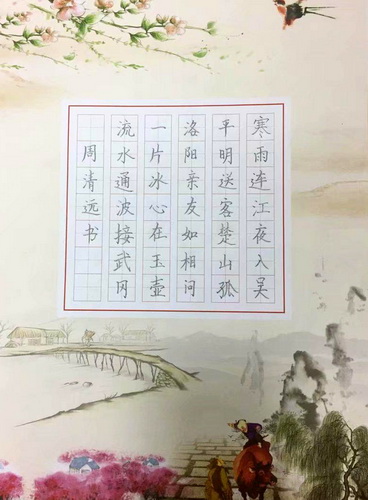 寒雨连江夜入吴
平明送客楚山孤
洛阳亲友如相问
一片冰心在玉壶
流水通波接武冈
周清远书